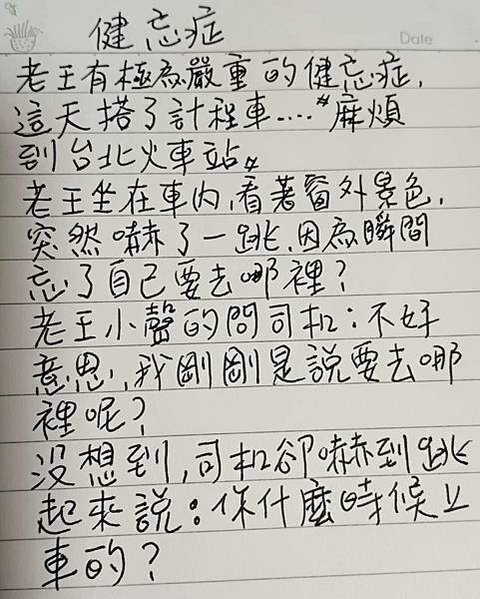 健忘症
Date.
老王有極為嚴重的健忘症,
這天搭了計程車....〝麻煩
到台北火車站〞
老王坐在車內,看著窗外景色,
突然嚇了一跳,因為瞬間
忘了自己要去哪裡?
老王小聲的問司机:不好
意思,我剛剛是說要去哪
裡呢?
沒想到,司机卻嚇到跳
起來說:你什麼時候上
車的?